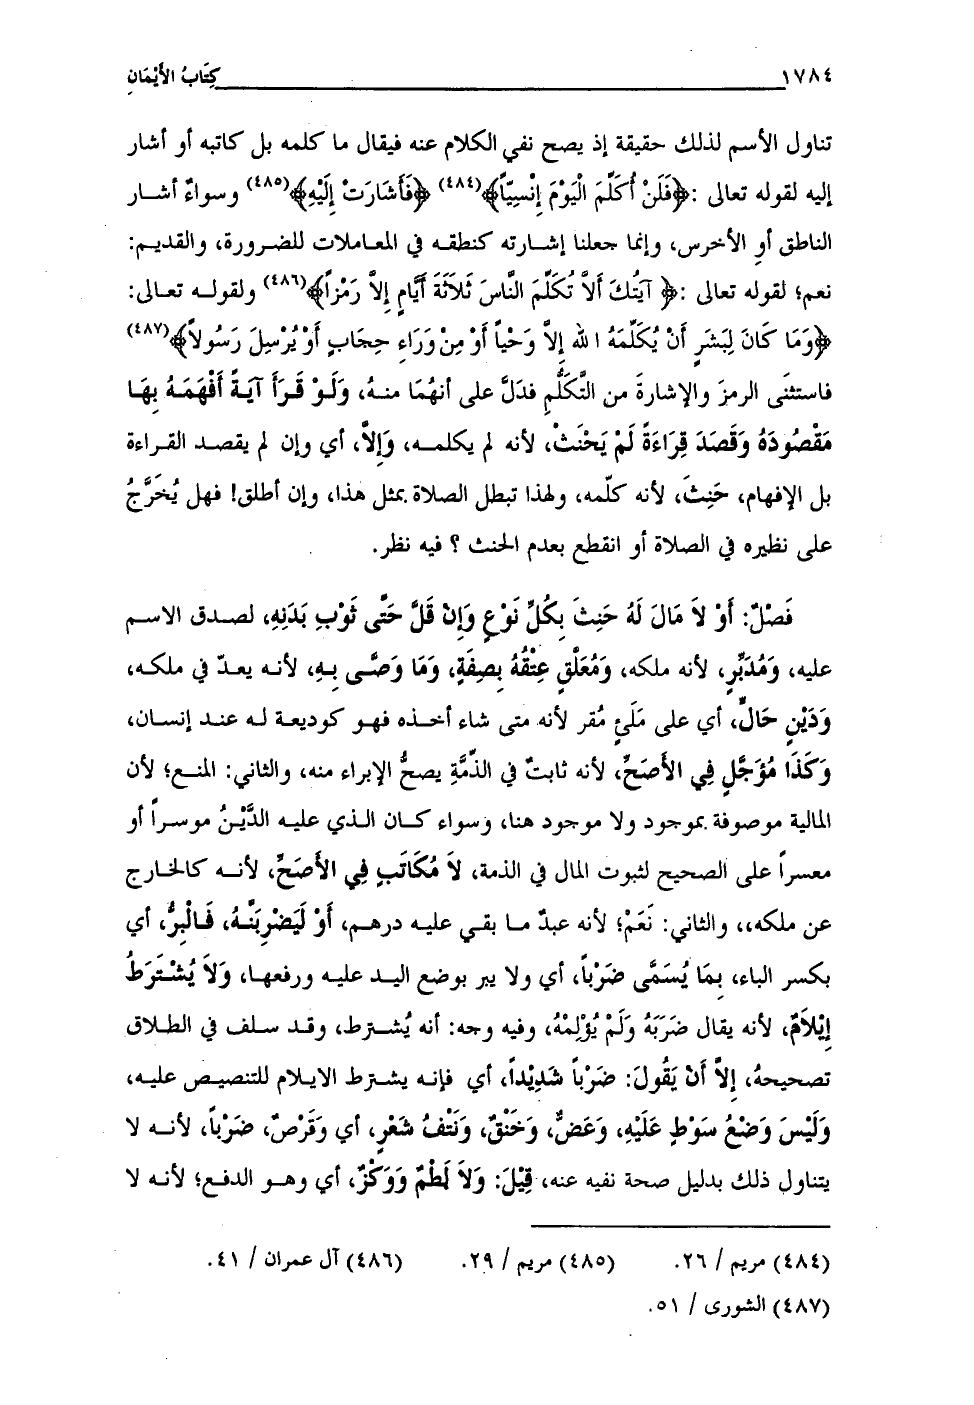 ١٧٨٤ كِتَابُ الأَيْمَانِ
تناول الأسم لذلك حقيقة إذ يصح نفي الكلام عنه فيقال ما كلمه بل كاتبه أو أشار
إليه لقوله تعالى :﴿فَلَنْ أُكَلِّمَ الْيَوْمَ إِنْسِيّاً﴾(٤٨٤) ﴿فَأَشَارَتْ إِلَيْهِ﴾(٤٨٥) وسواءٌ أشار
الناطق أو الأخرس، وإنما جعلنا إشارته كنطقه في المعاملات للضرورة، والقديم:
نعم؛ لقوله تعالى :﴿ آيَتُكَ أَلاَّ تُكَلِّمَ النَّاسَ ثَلاَثَةَ أَيَّامٍ إِلاَّ رَمْزاً﴾(٤٨٦) ولقوله تعالى:
﴿وَمَا كَانَ لِبَشَرٍ أَنْ يُكَلِّمَهُ الله إِلاَّ وَحْياً أَوْ مِنْ وَرَاءِ حِجَابٍ أَوْ يُرْسِلَ رَسُولاً﴾(٤٨٧)
فاستثنَى الرمزَ والإشارةَ من التَّكَلُّمِ فدَلَّ على أنهُمَا منهُ، وَلَوْ قَرَأَ آيَةً أَفْهَمَهُ بِهَا
مَقْصُودَهُ وَقَصَدَ قِرَاءَةً لَمْ يَحْنَثْ، لأنه لم يكلمه، وَإِلاَّ، أي وإن لم يقصد القراءة
بل الإفهام، حَنِثَ، لأنه كلّمه، ولهذا تبطل الصلاة بمثل هذا، وإن أطلق! فهل يُخَرَّجُ
على نظيره في الصلاة أو انقطع بعدم الحنث ؟ فيه نظر.
فَصْلٌ: أَوْ لاَ مَالَ لَهُ حَنِثَ بِكُلِّ نَوْعٍ وَإِنْ قَلَّ حَتَّى ثَوْبِ بَدَنِهِ، لصدق الاسم
عليه، وَمُدَبَّرٍ، لأنه ملكه، وَمُعَلَّقٍ عِتْقُهُ بِصِفَةٍ، وَمَا وَصَّى بِهِ، لأنه يعدّ في ملكه،
وَدَيْنٍ حَالٍّ، أي على مَلَئٍ مُقر لأنه متى شاء أخذه فهو كوديعة له عند إنسان،
وَكَذَا مُؤَجَّلٍ فِي الأَصَحِّ، لأنه ثابتٌ في الذِّمَّةِ يصحُّ الإبراء منه، والثاني: المنع؛ لأن
المالية موصوفة بموجود ولا موجود هنا، وسواء كان الذي عليه الدَّيْنُ موسراً أو
معسراً على الصحيح لثبوت المال في الذمة، لاَ مُكَاتَبٍ فِي الأَصَحِّ، لأنه كالخارج
عن ملكه،، والثاني: نَعَمْ؛ لأنه عبدٌ ما بقي عليه درهم، أَوْ لَيَضْرِبَنَّهُ، فَالْبِرُّ، أي
بكسر الباء، بِمَا يُسَمَّى ضَرْباً، أي ولا يبر بوضع اليد عليه ورفعها، وَلاَ يُشْتَرَطُ
إِيْلاَمٌ، لأنه يقال ضَرَبَهُ وَلَمْ يُؤْلِمْهُ، وفيه وجه: أنه يُشترط، وقد سلف في الطلاق
تصحيحهُ، إِلاَّ أَنْ يَقُولَ: ضَرْباً شَدِيْداً، أي فإنه يشترط الايلام للتنصيص عليه،
وَلَيْسَ وَضْعُ سَوْطٍ عَلَيْهِ، وَعَضٌّ، وَخَنْقٌ، وَنَتْفُ شَعْرٍ، أي وَقَرْصٌ، ضَرْباً، لأنه لا
يتناول ذلك بدليل صحة نفيه عنه، قِيْلَ: وَلاَ لَطْمٌ وَوَكْزٌ، أي وهو الدفع؛ لأنه لا
(٤٨٤) مريم / ٢٦. (٤٨٥) مريم / ٢٩. (٤٨٦) آل عمران / ٤١.
(٤٨٧) الشورى / ٥١.